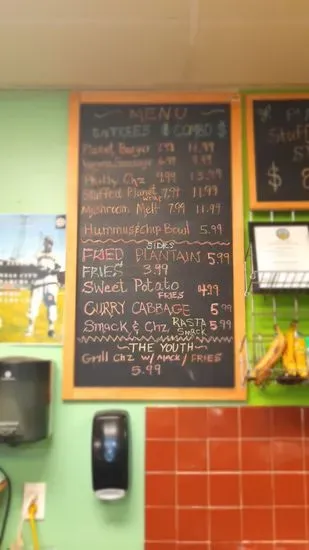 MENU
ENTREES $ COMBO $
Planet Burger 7.99 11.99
Veggie Sausage 6.99 9.99
Philly Chz 9.99 13.99
Stuffed Planet Wrap 7.99 11.99
Mushroom Melt 7.99 11.99
Hummus & chip Bowl 5.99
SIDES
FRIED PLANTAIN 5.99
FRIES 3.99
Sweet Potato FRIES 4.99
CURRY CABBAGE 5.99
Smack & Chz RASTA SMACK 5.99
~THE YOUTH~
Grill Chz w/ MACK / FRIES
5.99
Stuff
$ 8